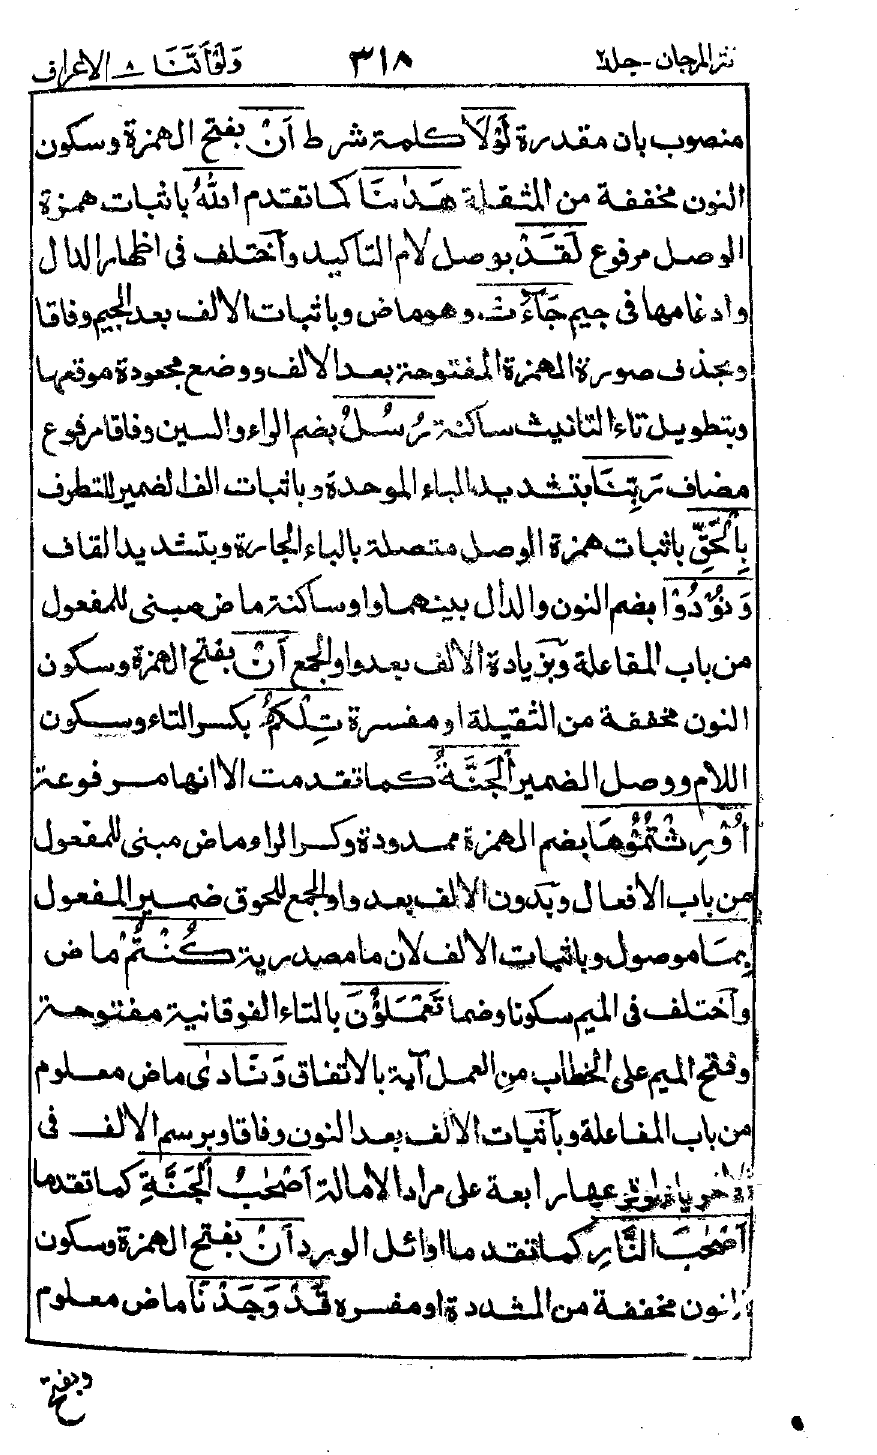 نثر المرجان - جلد ٢ ٣١٨ وَلَوْأَنَّنَا ٨ الاعراف
منصوب بان مقدرة لَوْلَا كلمة شرط اَنْ بفتح الهمزة وسكون
النون مخففة من المثقلة هَدٰىنَا كما تقدم اللهُ باثبات همزة
الوصل مرفوع لَقَدْ بوصل لام التاكيد واختلف فى اظهار الدال
وادغامها فى جيم جَاءَتْ وهو ماض وباثبات الالف بعد الجيم وفاقا
وبحذف صورة الهمزة المفتوحة بعد الالف ووضع مجعودة موقعها
وبتطويل تاء التانيث ساكنة رُسُلُ بضم الراء والسين وفاقا مرفوع
مضاف رَبِّنَا بتشديد الباء الموحدة وباثبات الف الضمير للتطرف
بِالْحَقِّ باثبات همزة الوصل متصلة بالباء الجارة وبتشديد القاف
وَنُوْدُوْا بضم النون والدال بينهما واو ساكنة ماض مبنى للمفعول
من باب المفاعلة وبزيادة الالف بعد واو الجمع اَنْ بفتح الهمزة وسكون
النون مخففة من الثقيلة او مفسرة تِلْكُمُ بكسر التاء وسكون
اللام ووصل الضمير الْجَنَّةُ كما تقدمت الا انها مرفوعة
اُوْرِثْتُمُوْهَا بضم الهمزة ممدودة وكسر الراء وماض مبنى للمفعول
من باب الافعال وبدون الالف بعد واو الجمع للحوق ضمير المفعول
بِمَا موصول وباثبات الالف لان ما مصدرية كُنْتُمْ ماض
واختلف فى الميم سكونا وضما تَعْمَلُوْنَ بالتاء الفوقانية مفتوحة
وفتح الميم على الخطاب من العمل آية بالاتفاق وَنَادٰى ماض معلوم
من باب المفاعلة وباثبات الالف بعد النون وفاقا وبرسم الالف فى
رابعة على مراد الامالة اَصْحٰبُ الْجَنَّةِ كما تقدما
اَصْحٰبَ النَّارِ كما تقدما اوائل الورد اَنْ بفتح الهمزة وسكون
النون مخففة من المشددة او مفسره قَدْ وَجَدْنَا ماض معلوم
وبفتح